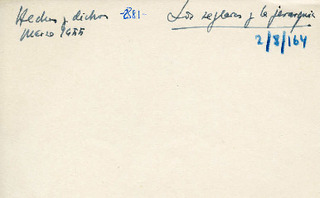 Hechos y dichos -2881- Los seglares y la jerarquía
Marzo 1955
2/8/164